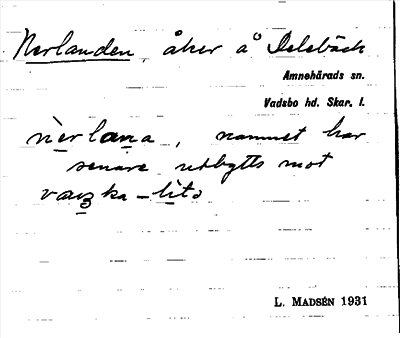 Nerlanden, åker å Delebäck
Amnehärads sn.
Vadsbo hd. Skar. l.
nerlana, namnet har
senare utbytts mot
L. MADSÉN 1931